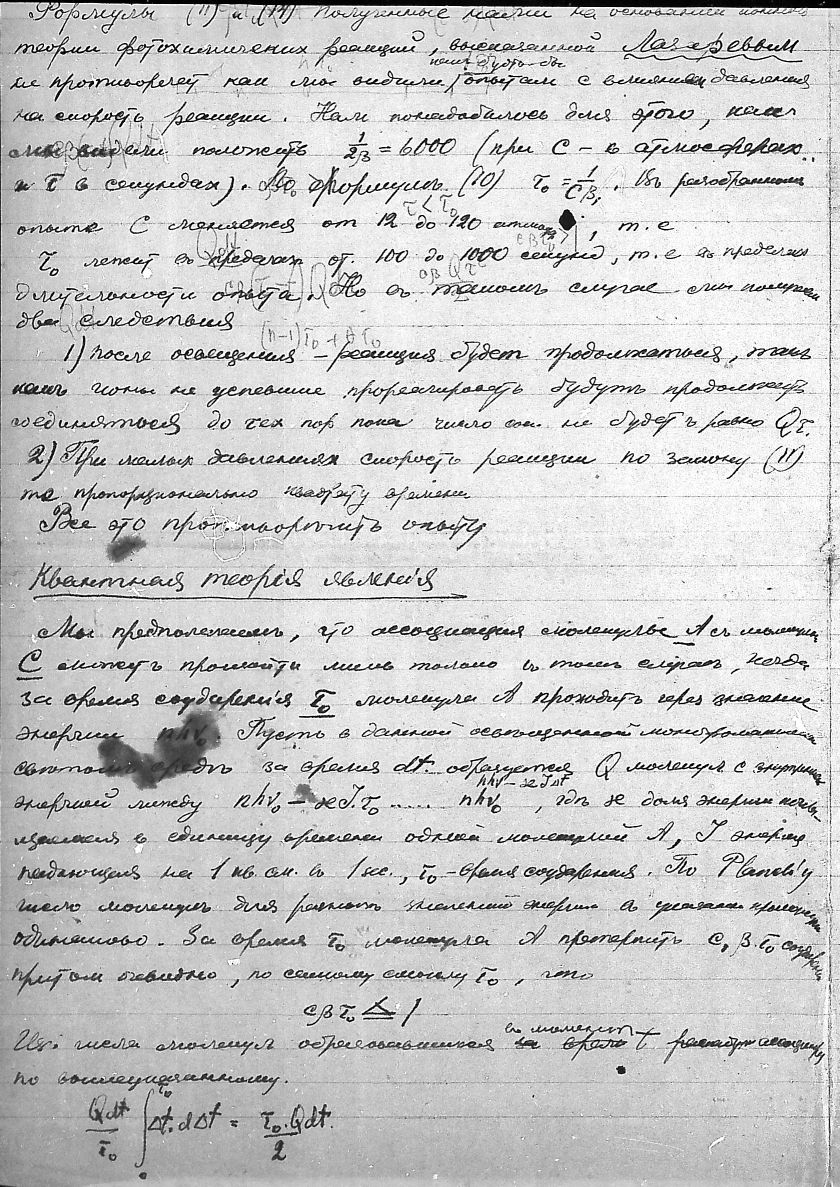 Формулы (11) и (14) полученные нами на основании ионной
теории фотохимических реакций, высказанной Лазаревым
не противоречат как мы видели опытам с влиянием давления
на скорость реакции. Нам понадобилось для этого, как
мы видели положить 1/2β = 6000 (при C – в атмосферах
и τ в секундах). По формуле (10) τ₀ = 1/Cβ. Въ разобранном
τ < τ₀
опыте C меняется от 12 до 120 атм, т.е
τ₀ лежит въ пределах от 100 до 1000 секунд, т.е въ пределах
длительности опыта. Но въ таком случае мы получаем
два следствия
(n-1)τ₀ + Δτ₀
1) После освещения – реакция будет продолжаться, так
как ионы не успевшие прореагировать будутъ продолжать
соединяться до тех пор пока число их не будетъ равно Qτ.
2) При малых давлениях скорость реакции по закону (11)
пропорциональна квадрату времени
Все это противоречитъ опыту
Квантная теорія явленія
Мы предполагаем, что ассоциация молекулы A съ молекулой
C можетъ произойти лишь только въ том случае, когда
за время соударения τ₀ молекула A проходитъ через значение
энергии nhν₀. Пусть в данной освещенной монохроматическим
светомъ средѣ за время dt образуется Q молекул с внутренней
nhν – ϰJΔt
энергией между nhν₀ – ϰJ.τ₀ ..... nhν₀, где ϰ доля энергии поглощ-
щаемая в единицу времени одной молекулой A, J энергия
падающая на 1 кв. см. въ 1 sec., τ₀ – время соударения. По Planck'у
число молекул для разных значений энергии в указанном промежутке
одинаково. За время τ₀ молекула A претерпитъ c, β.τ₀ соударений
притом очевидно, по самому смыслу τ₀, что
cβτ₀ ≤ 1
въ момент
Из числа молекул образовавшихся за время t
по вышеуказанному.
Qdt/τ₀ ∫₀^τ₀ Δt.dΔt = τ₀.Qdt/2